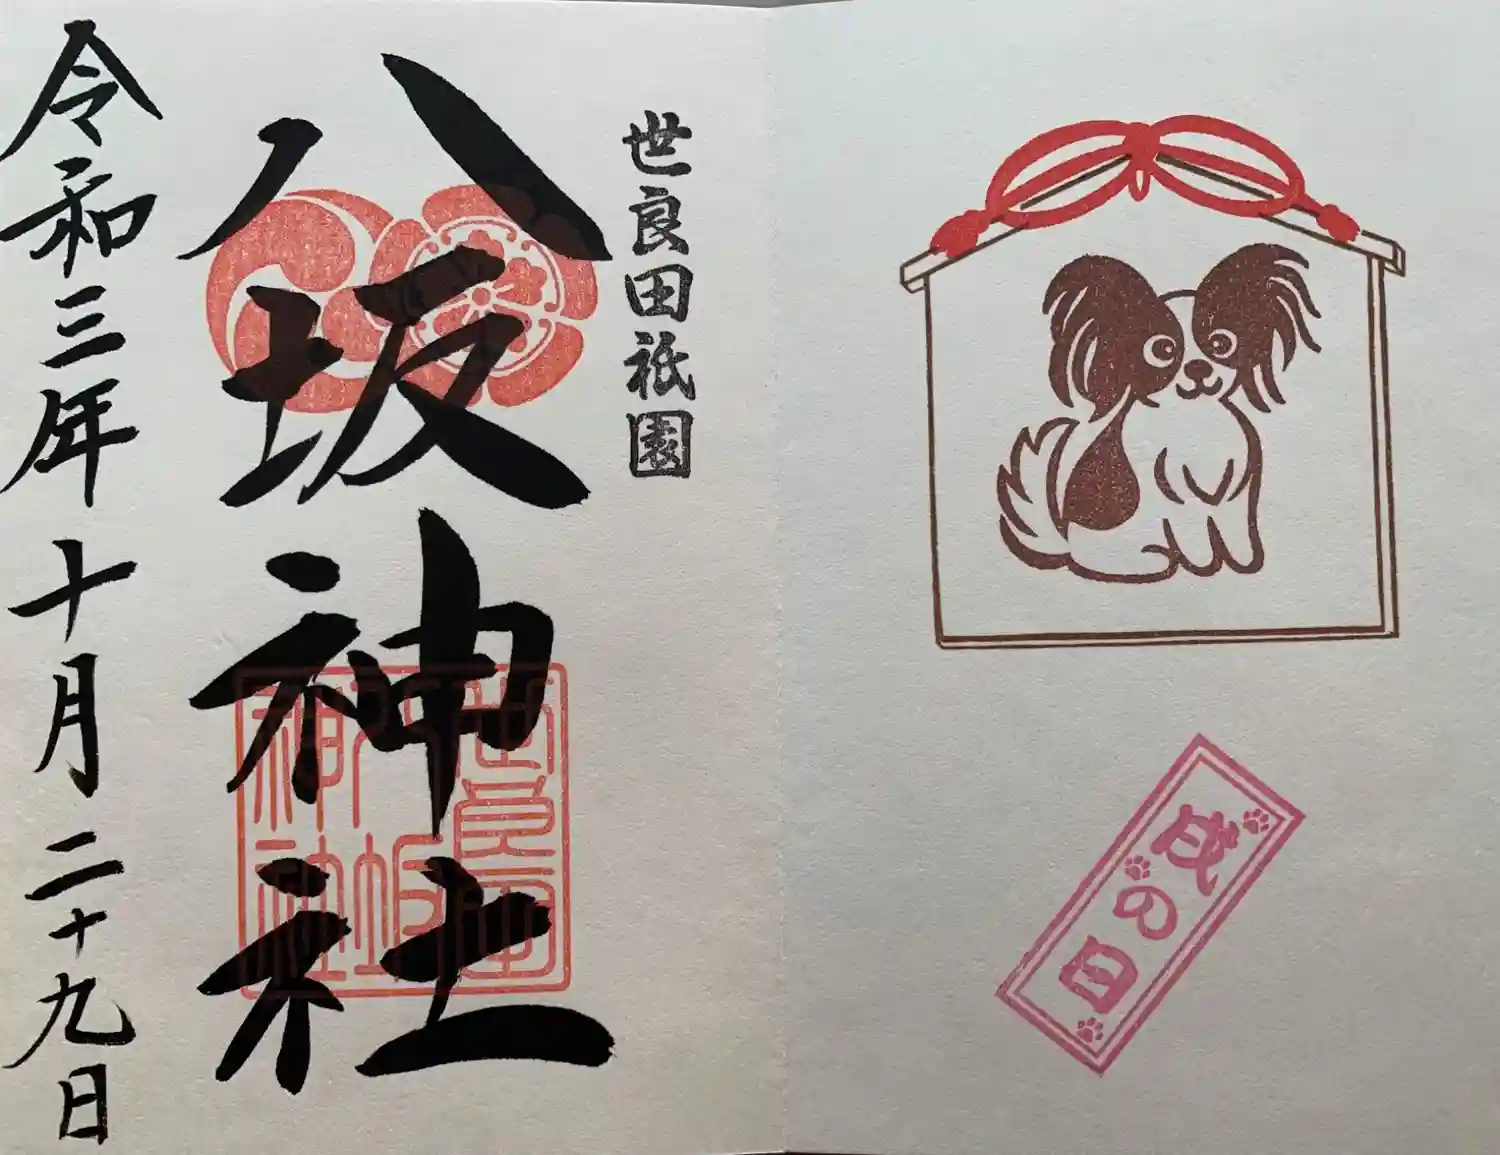 世良田祇園
八坂神社
令和三年十月二十九日
世良田
八坂
神社
戌の日